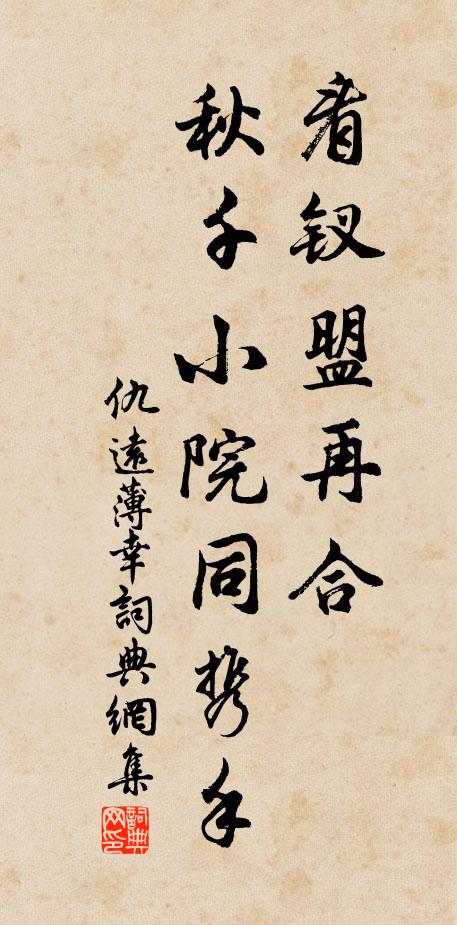 看钗盟再合
秋千小院同携手
仇遠薄幸詞典網集
詞典
网印